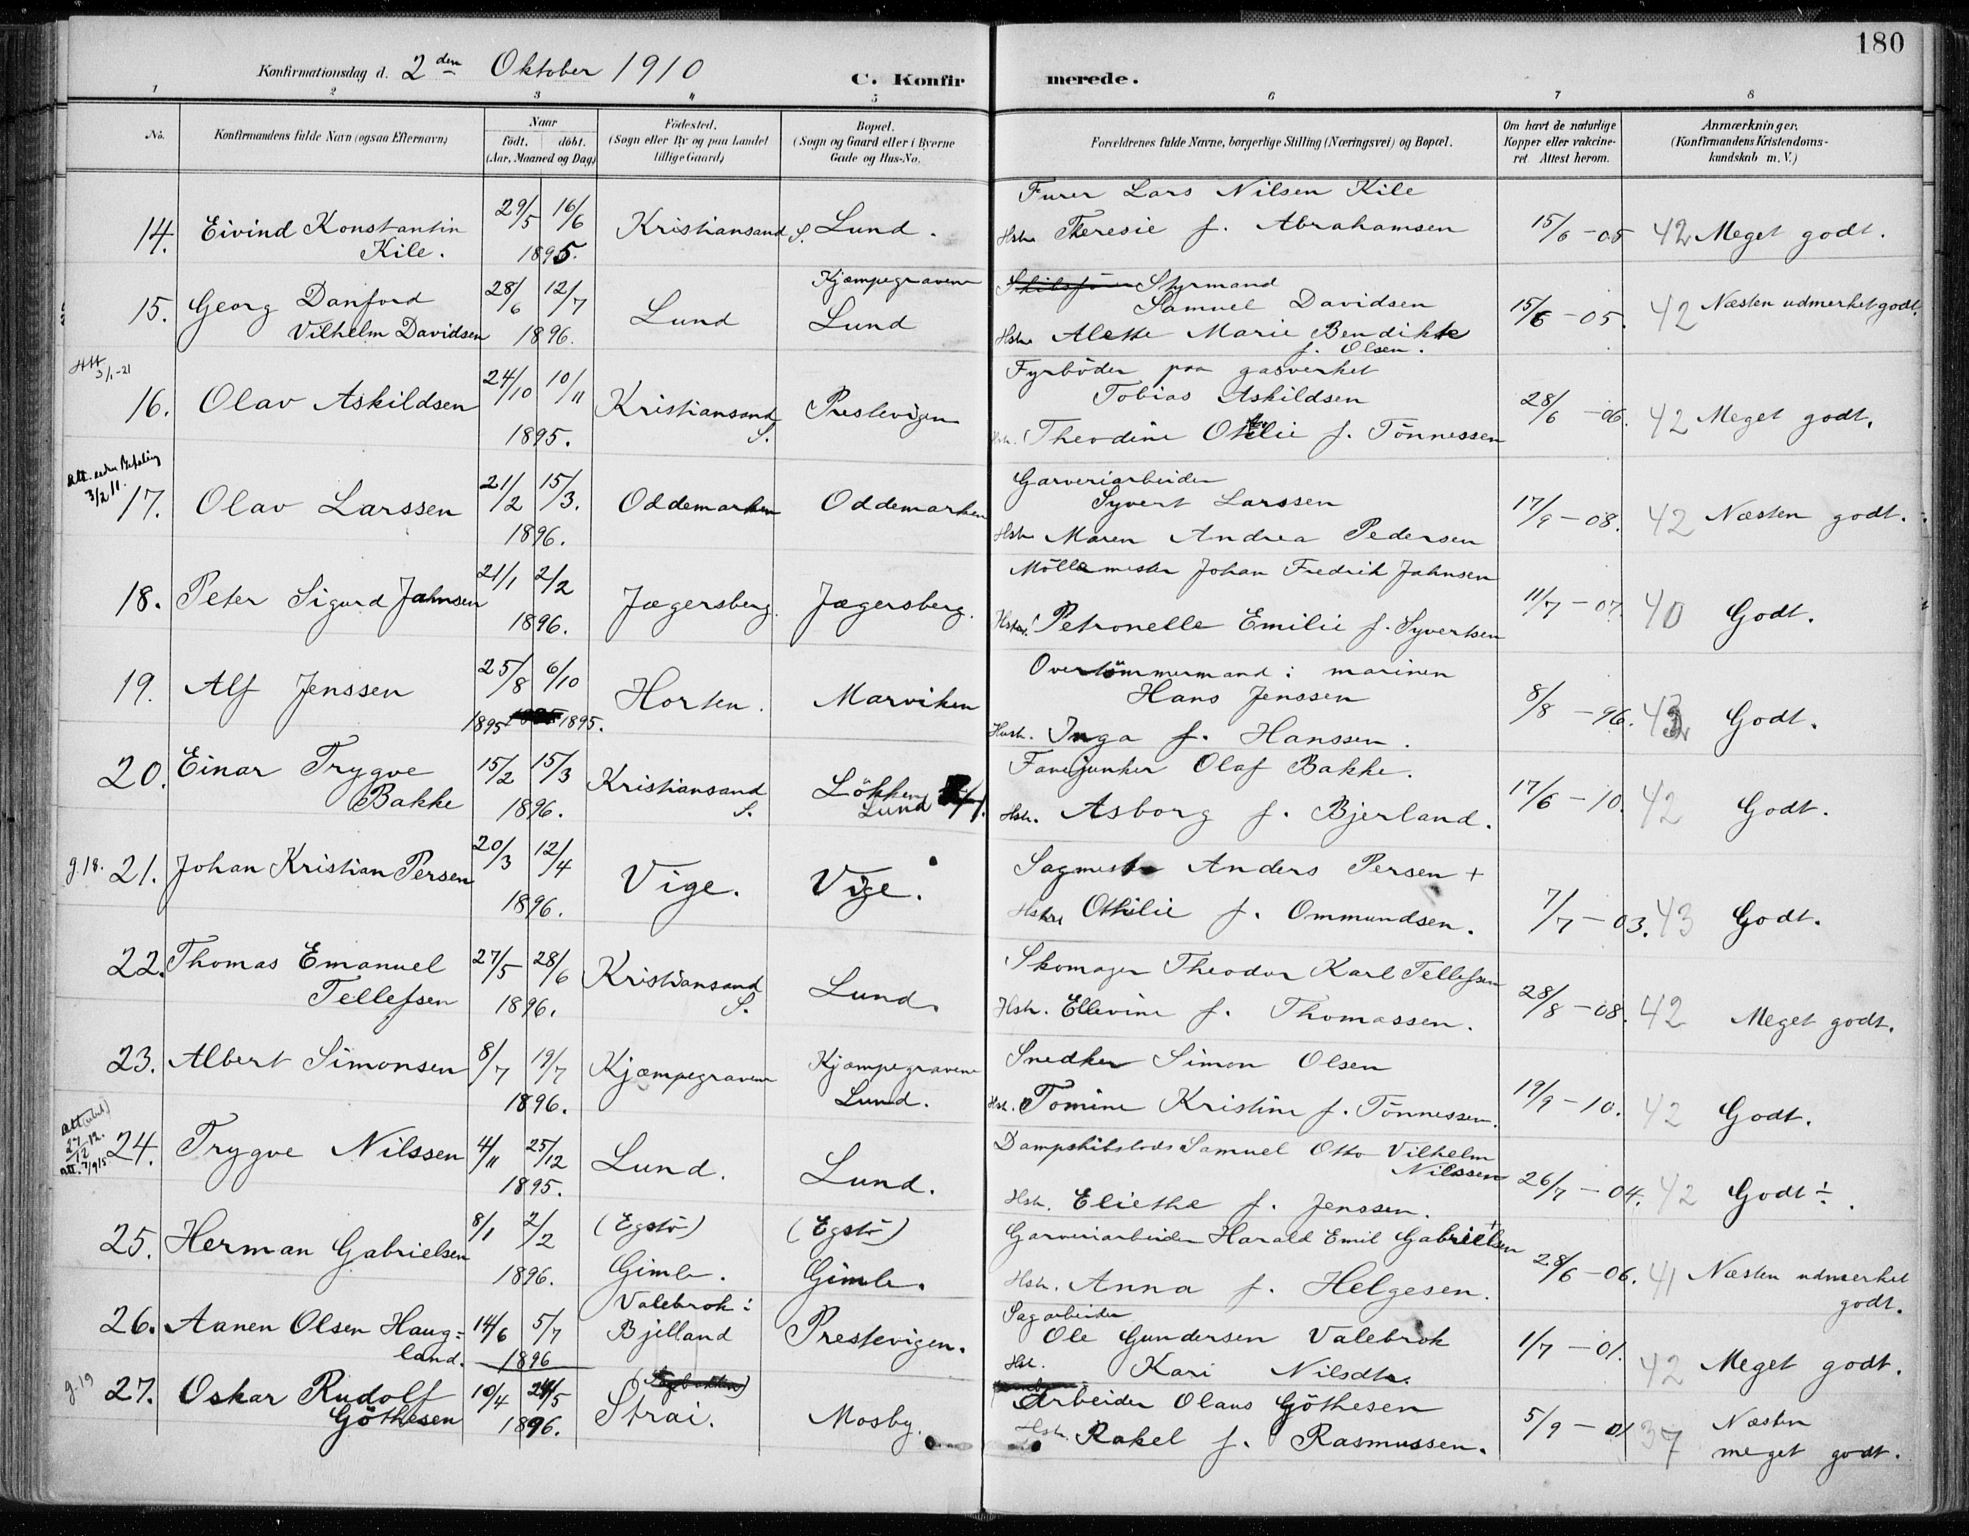 180
Konfirmationsdag d. 2den Oktober 1910 C. Konfirmerede.
1 2 3 4 5 6 7 8
No. Konfirmandens fulde Navn (ogsaa Efternavn) Naar født. døbt. (Aar, Maaned og Dag) Fødested. (Sogn eller By og paa Landet tillige Gaard) Bopæl. (Sogn og Gaard eller i Byerne Gade og Hus-No. Forældrenes fulde Navne, borgerlige Stilling (Næringsvei) og Bopæl. Om havt de naturlige Kopper eller vakcineret Attest herom. Anmærkninger. (Konfirmandens Kristendomskundskab m. V.)
Furer Lars Nilsen Kile
14. Eivind Konstantin 29/5 16/6 Kristiansand S. Lund. Hstr Theresie f. Abrahamsen 15/6 - 05 42 Meget godt.
Kile. 1895.
Kjæmpegravene Skibsfører Styrmand
15. Georg Danford 28/6 12/7 Lund Lund Samuel Davidsen 15/6 - 05. 42 Næsten udmerket godt.
Vilhelm Davidsen 1896. Hstr. Alette Marie Bendikte
f. Olsen.
Att 3/1-21 Fyrbøder paa gasverket
16. Olav Askildsen 24/10 10/11 Kristiansand S. Prestevigen Tobias Askildsen 28/6 - 06. 42 Meget godt.
1895. Hstr. Theodine Otilie f. Tönnessen
3/2 11. Garveriarbeider
17. Olav Larssen 21/2 15/3. Oddemarken Oddemarken Syvert Larssen 17/9 - 08. 42 Næsten godt.
1896. Hstr Maren Andrea Pedersen
Möllemester Johan Fredrik Jahnsen
18. Peter Sigurd Jahnsen 21/1 2/2 Jægersberg. Jægersberg. 11/7 - 07. 40 Godt.
1896. Hstr. Petronelle Emilie f. Syvertsen
Overtömmermand i marinen
19. Alf Jenssen 25/8 6/10 Horten. Marviken Hans Jenssen 8/8 - 96. 43 Godt.
1895 1895. Hustr. Inga f. Hanssen.
20. Einar Trygve 15/2 15/3 Kristiansand Lökken Fanejunker Olaf Bakke. 17/6 - 10. 42 Godt.
Bakke 1896. S. Lund Hstr. Asborg f. Bjerland.
g.18. 21. Johan Kristian Persen 20/3 12/4 Vige. Vige. Sagmester Anders Persen + 7/7 - 03. 43 Godt.
1896. Hstru Othilie f. Ommundsen.
22. Thomas Emanuel 27/5 28/6 Kristiansand Lund. Skomager Theodor Karl Tellefsen 28/8 - 08. 42 Meget godt.
Tellefsen 1896. S. Hstr. Ellevine f. Thomassen.
23. Albert Simonsen 8/7 19/7 Kjæmpegravene Kjæmpegravene Snedker Simon Olsen 19/9 - 10. 42 Godt.
1896. Lund. Hstr. Tomine Kristine f. Tönnessen.
Att 27/12 12. Att. 7/9 15 Dampskibslods Samuel Otto Vilhelm
24. Trygve Nilssen 4/11 25/12 Lund. Lund. Nilssen 26/7 - 04. 42 Godt ÷.
1895. Hstr. Eliethe f. Jenssen.
25. Herman Gabrielsen 8/1 2/2 (Egstö) (Egstö) Garveriarbeider Harald Emil Gabrielsen 28/6 - 06. 41 Næsten udmerket
1896. Gimle. Gimle. Hstr. Anna f. Helgesen. godt.
Valebrok i Sagarbeider
26. Aanen Olsen Haug= 14/6 5/7 Bjelland Prestevigen. Ole Gundersen Valebrok 1/7 - 01. 42 Meget godt.
land. 1896 Hst. Kari Nilsdtr.
g.19 27. Oskar Rudolf 10/4 24/5 Strai. Mosby. Arbeider Olaus Göthesen 5/9 - 01 37 Næsten
Göthesen 1896. Hstr. Rakel f. Rasmussen. meget godt.